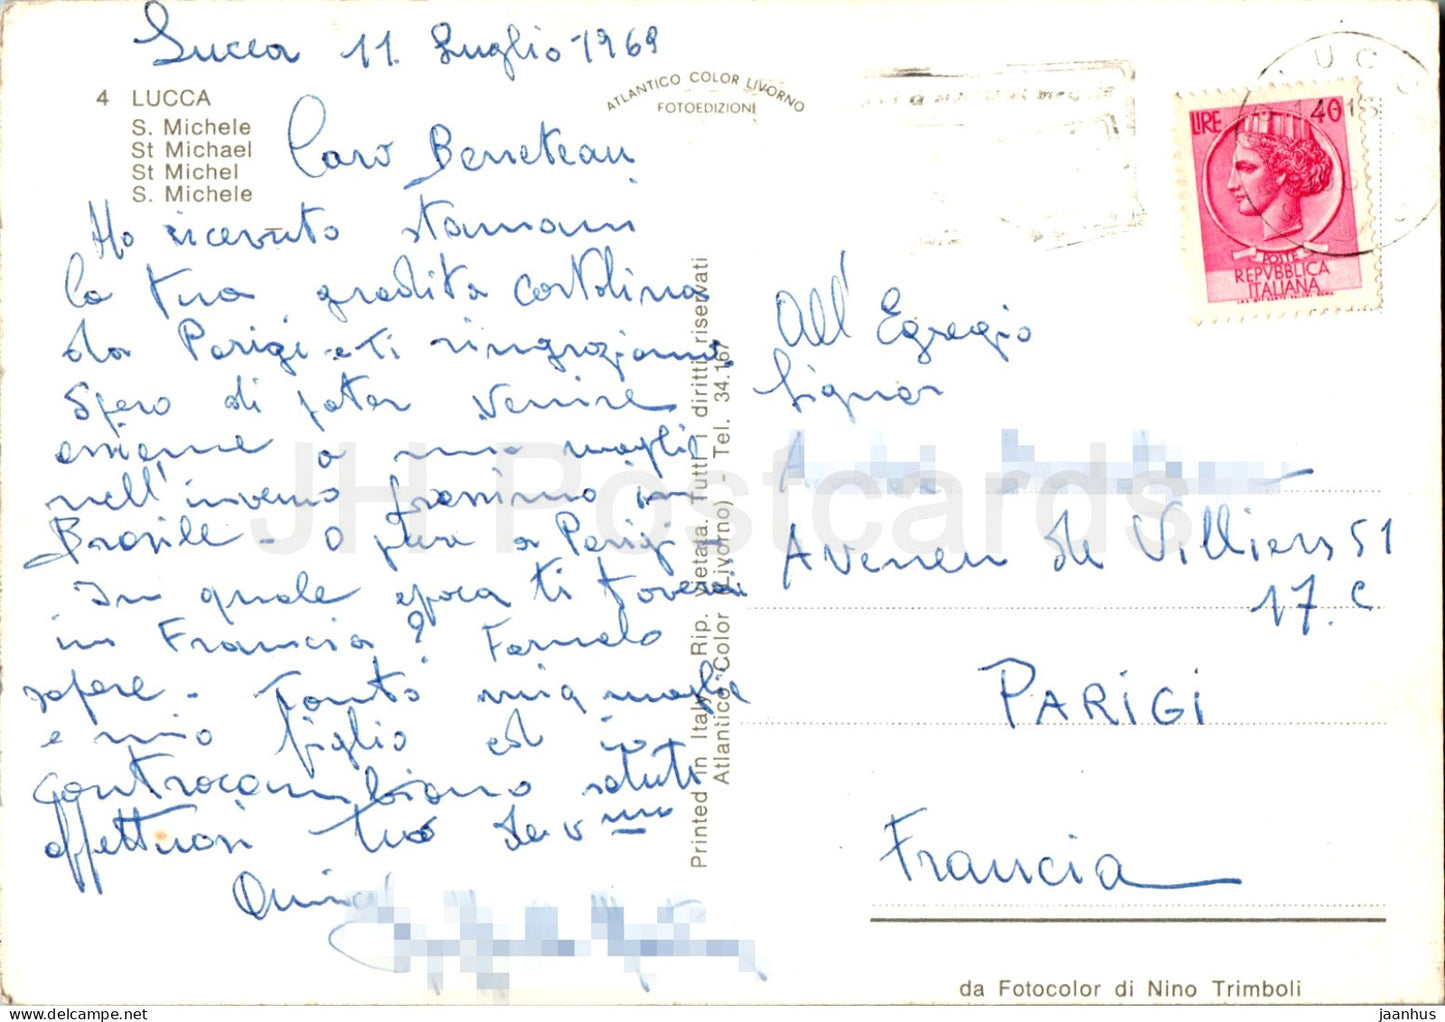 Lucca 11. Luglio 1969
4 LUCCA
S. Michele
St Michael
St Michel
S. Michele
ATLANTICO COLOR LIVORNO
FOTOEDIZIONI
Caro Berreteau
Ho ricevuto stamani
la tua gradita cartolina
da Parigi e ti ringrazio
Spero di poter venire
assieme a mia moglie
nell'inverno prossimo in
Brasile - O pure a Parigi -
In quale epoca ti troverai
in Francia? Famelo
sapere - Tanto mia moglie
e mio figlio ed io
contracambiano saluti
affettuosi tuo dev mo
Printed in Italy - Rip. Vietata. Tutti i diritti riservati
Atlantico Color (Livorno) - Tel. 34.167
LIRE 40
POSTE
REPVBBLICA
ITALIANA
All' Egregio
Signor
Avenen de Villiers 51
17. e
PARIGI
Francia
da Fotocolor di Nino Trimboli
JH Postcards
jaanhus